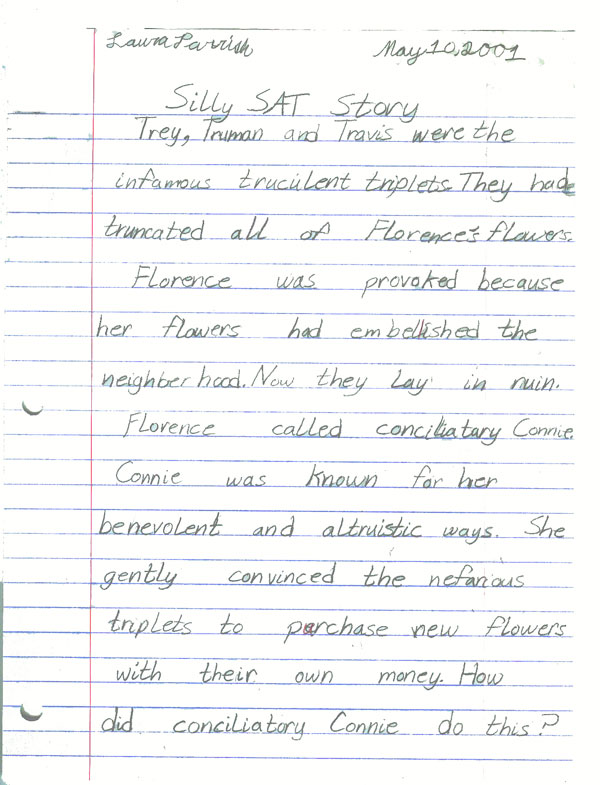 Laura Parrish May 10, 2001
Silly SAT Story
Trey, Truman and Travis were the
infamous truculent triplets. They had
truncated all of Florence's flowers.
Florence was provoked because
her flowers had embellished the
neighberhood. Now they lay in ruin.
Florence called conciliatary Connie.
Connie was known for her
benevolent and altruistic ways. She
gently convinced the nefarious
triplets to purchase new flowers
with their own money. How
did conciliatory Connie do this?